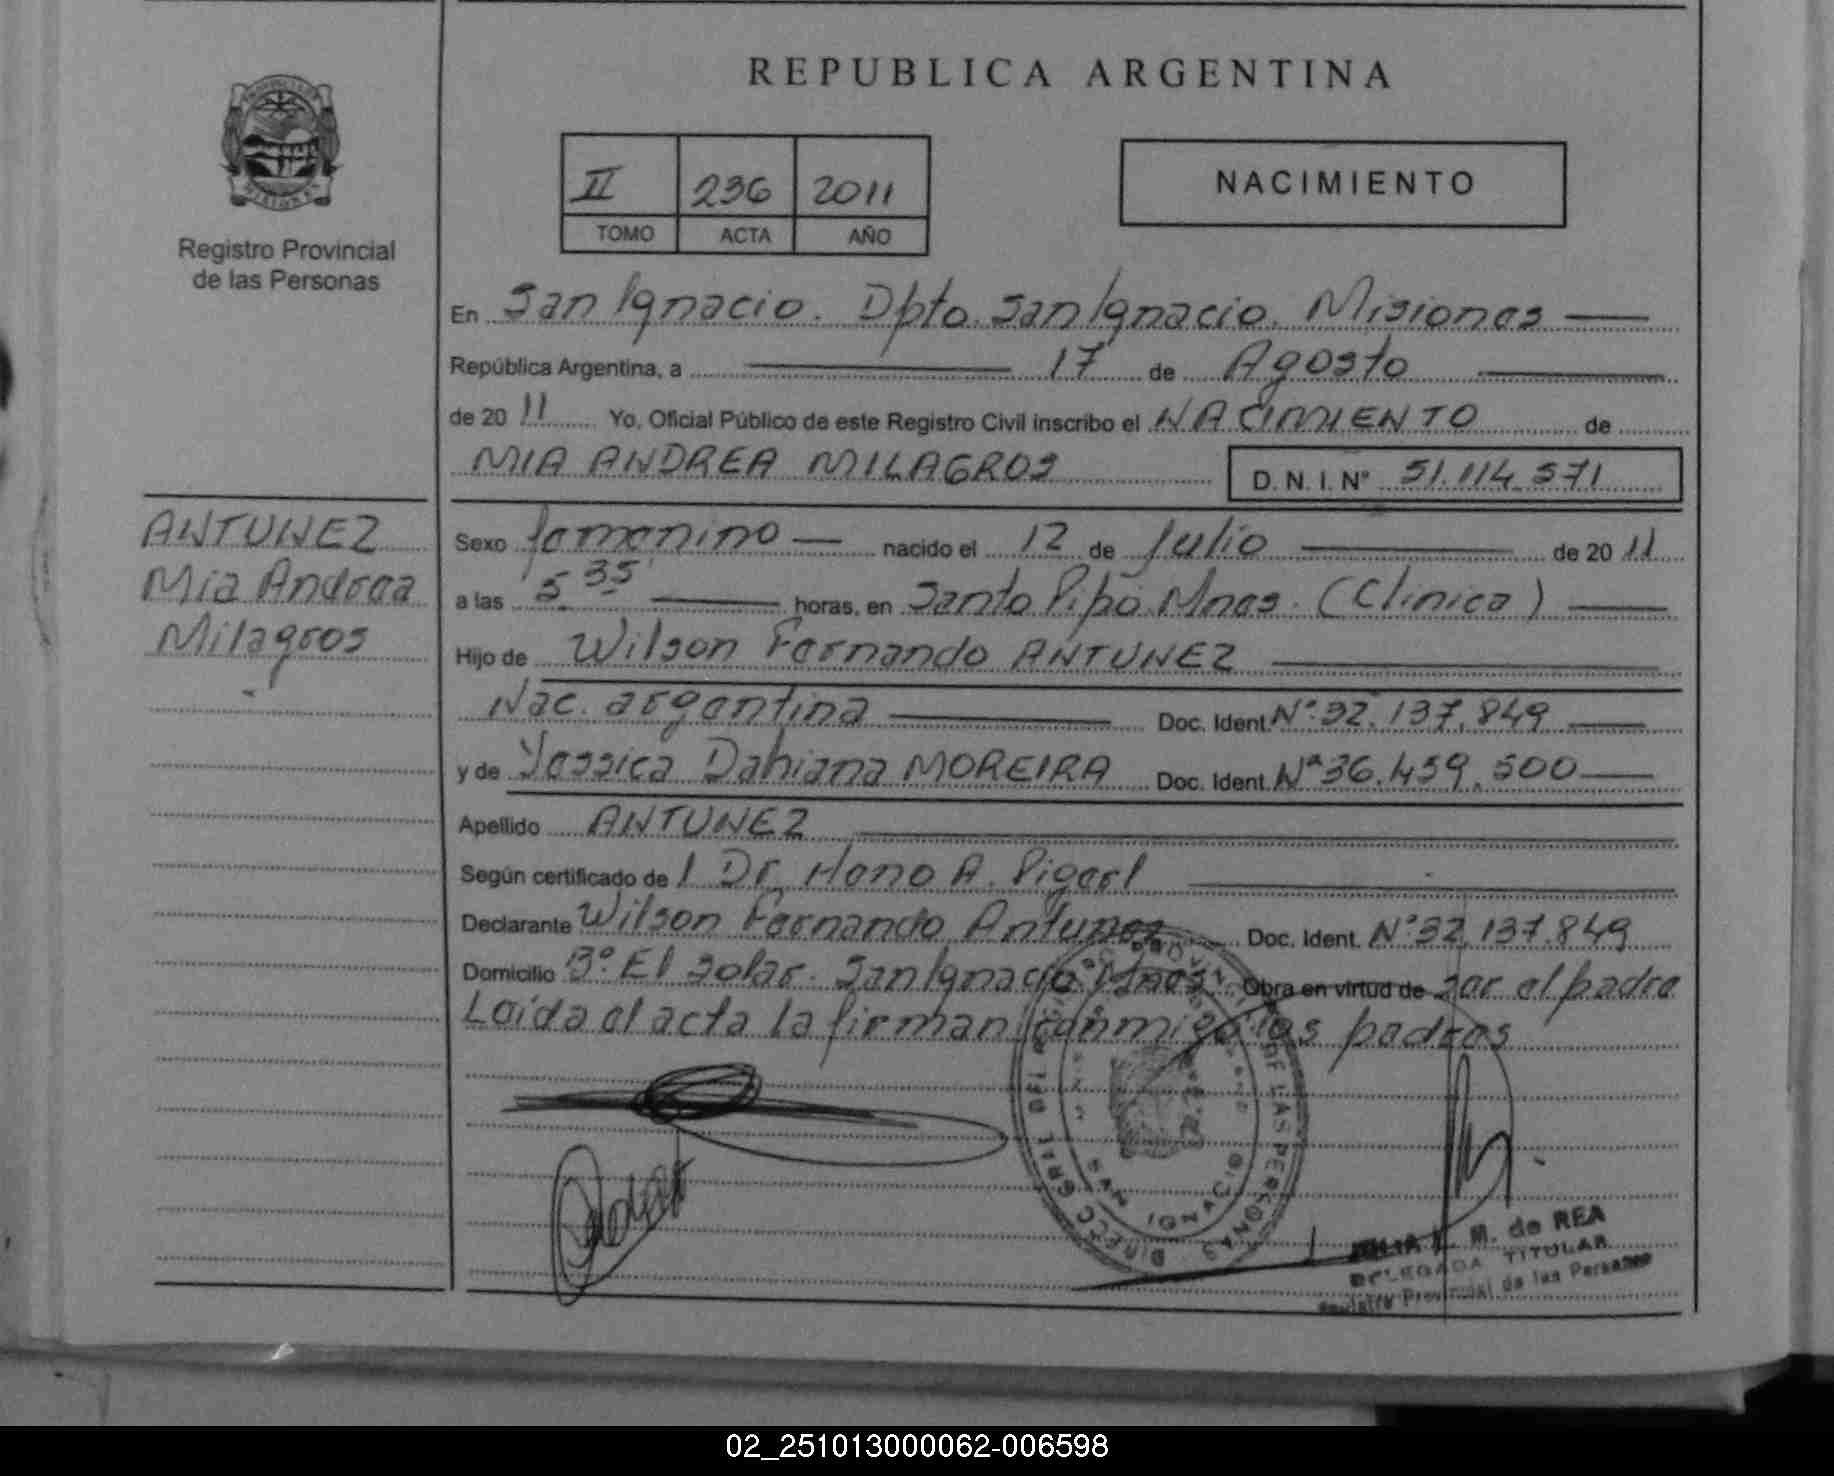 REPUBLICA ARGENTINA
Registro Provincial
de las Personas
II 236 2011
TOMO ACTA AÑO
NACIMIENTO
En San Ignacio. Dpto. San Ignacio. Misiones
República Argentina, a 17 de Agosto
de 20 11 Yo, Oficial Público de este Registro Civil inscribo el NACIMIENTO de
MIA ANDREA MILAGROS D.N.I. Nº 51.114.571
ANTUNEZ
Mia Andrea
Milagros
Sexo femenino nacido el 12 de Julio de 20 11
a las 5 35' horas, en Santo Pipó. Mnes. (Clinica)
Hijo de Wilson Fernando ANTUNEZ
Nac. argentina Doc. Ident. Nº 32.137.849
y de Yessica Dahiana MOREIRA Doc. Ident. Nª 36.459.500
Apellido ANTUNEZ
Según certificado de l Dr. A.
Declarante Wilson Fernando Antunez Doc. Ident. Nº 32.137.849
Domicilio Bº El Solar. San Ignacio Mnes. Obra en virtud de ser el padre
Leída el acta la firman conmigo los padres
SAN IGNACIO
DE LAS PERSONAS
M. de REA
DELEGADA TITULAR
Registro Provincial de las Personas
02_251013000062-006598